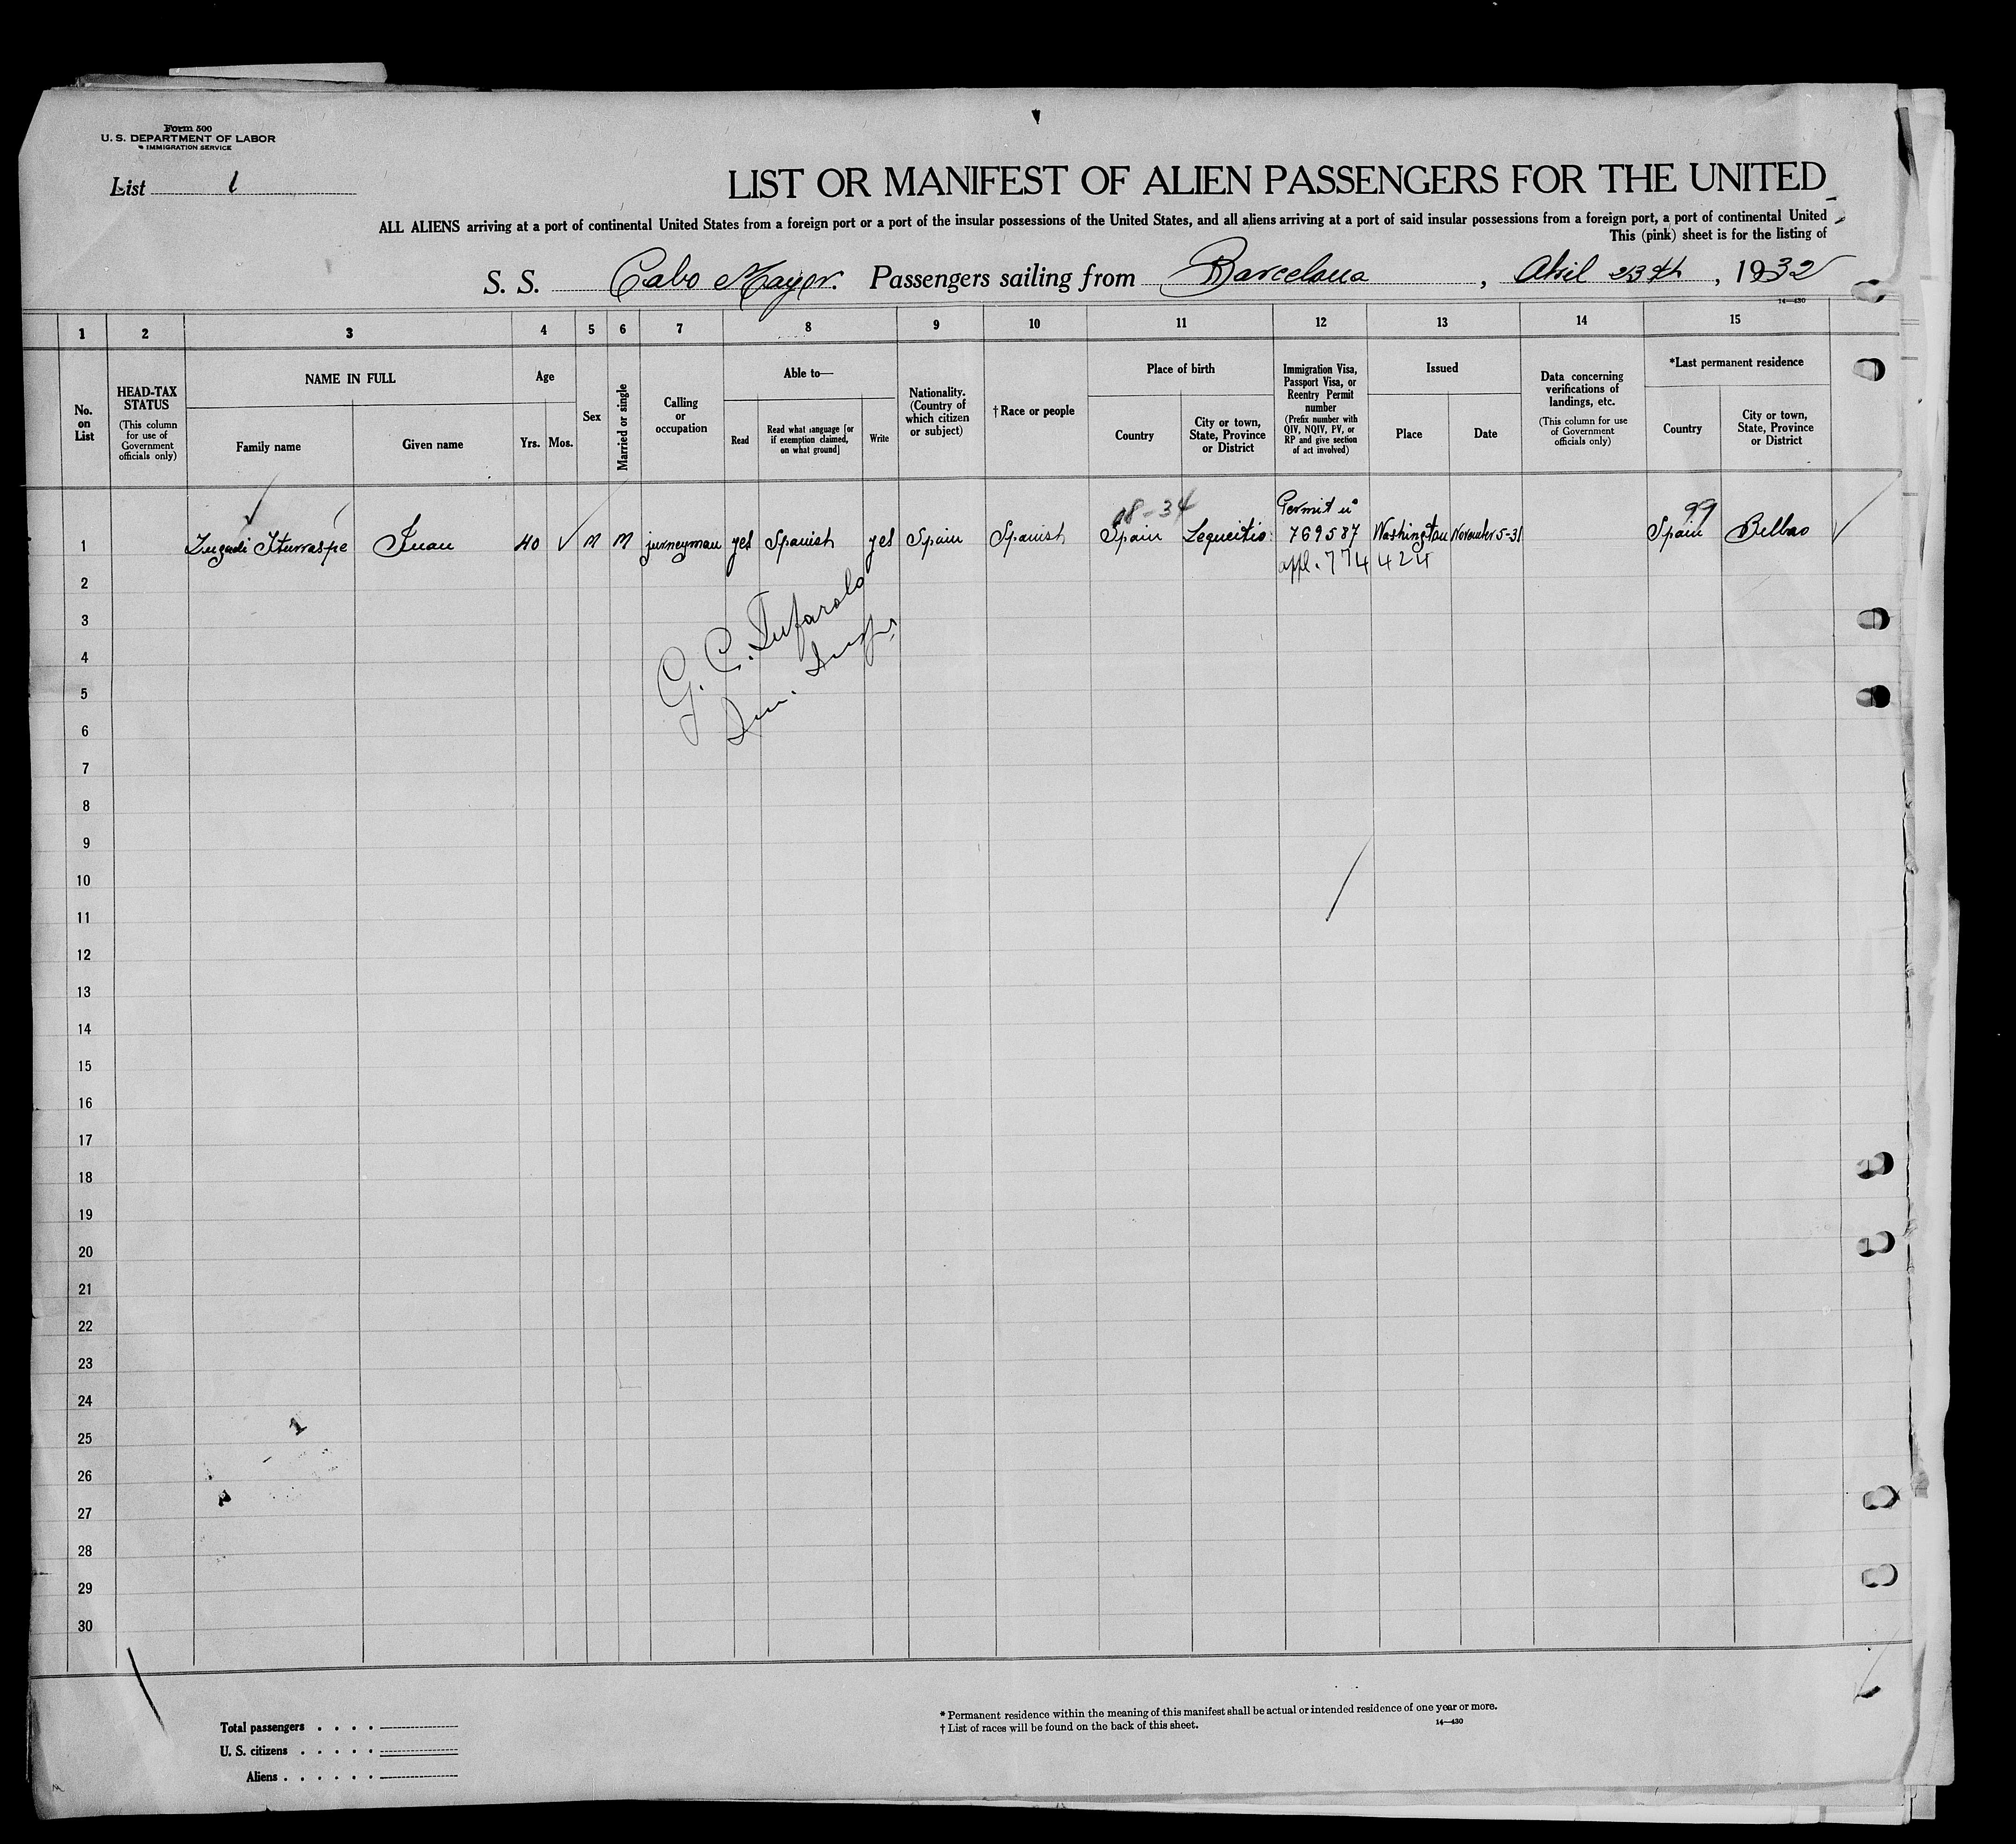 Form 500
U. S. DEPARTMENT OF LABOR
IMMIGRATION SERVICE
List 1
LIST OR MANIFEST OF ALIEN PASSENGERS FOR THE UNITED
ALL ALIENS arriving at a port of continental United States from a foreign port or a port of the insular possessions of the United States, and all aliens arriving at a port of said insular possessions from a foreign port, a port of continental United
This (pink) sheet is for the listing of
S. S. Cabo Mayor. Passengers sailing from Barcelona, April 23th, 1932
14—430
1 2 3 4 5 6 7 8 9 10 11 12 13 14 15
No. on List
HEAD-TAX STATUS
(This column for use of Government officials only)
NAME IN FULL
Family name
Given name
Age
Yrs.
Mos.
Sex
Married or single
Calling or occupation
Able to—
Read
Read what language [or if exemption claimed, on what ground]
Write
Nationality. (Country of which citizen or subject)
†Race or people
Place of birth
Country
City or town, State, Province or District
Immigration Visa, Passport Visa, or Reentry Permit number
(Prefix number with QIV, NQIV, PV, or RP and give section of act involved)
Issued
Place
Date
Data concerning verifications of landings, etc.
(This column for use of Government officials only)
*Last permanent residence
Country
City or town, State, Province or District
08-34 Permit nº 99
1 Iturraspe Juan 40 M M jurneyman yes Spanish yes Spain Spanish Spain Lequeitio 769587 Washington November 5-31 Spain Belbao
appl. 774424
2
G. C. Tufarolo
3
4
5
6
7
8
9
10
11
12
13
14
15
16
17
18
19
20
21
22
23
24
25
1
26
27
28
29
30
Total passengers . . . .
U. S. citizens . . . . .
Aliens . . . . . .
* Permanent residence within the meaning of this manifest shall be actual or intended residence of one year or more.
† List of races will be found on the back of this sheet.
14—430